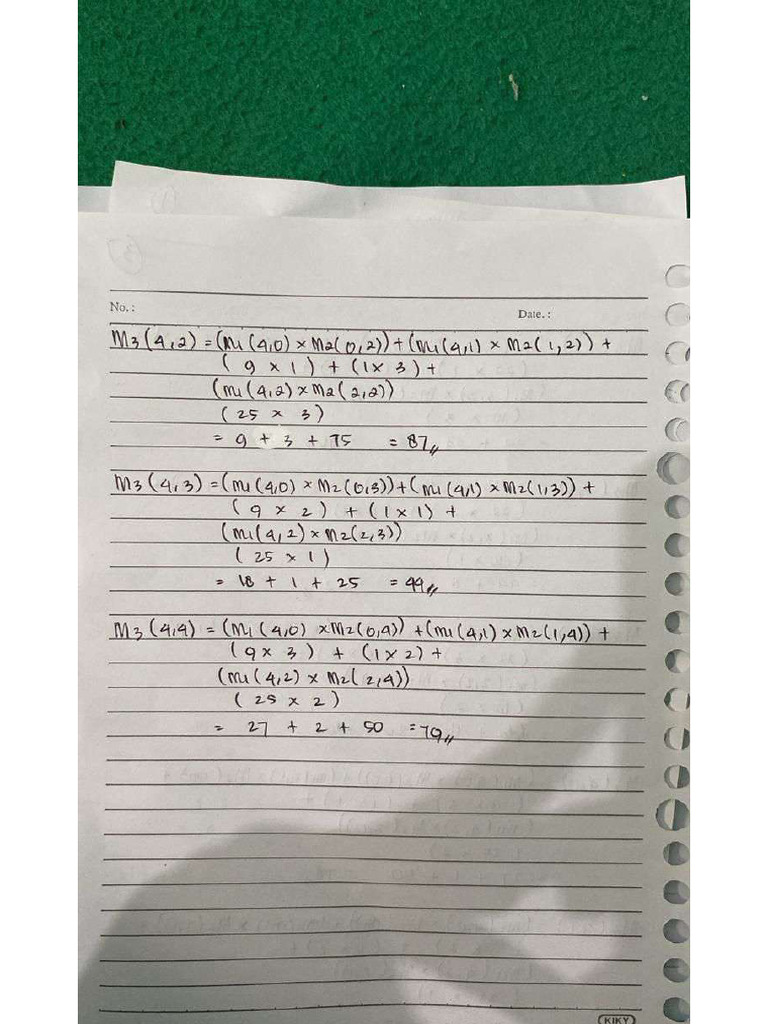 No.:
Date.:
M3(4,2) = (M1(4,0) × M2(0,2)) + (M1(4,1) × M2(1,2)) +
(9 × 1) + (1 × 3) +
(M1(4,2) × M2(2,2))
(25 × 3)
= 9 + 3 + 75 = 87
M3(4,3) = (M1(4,0) × M2(0,3)) + (M1(4,1) × M2(1,3)) +
(9 × 2) + (1 × 1) +
(M1(4,2) × M2(2,3))
(25 × 1)
= 18 + 1 + 25 = 44
M3(4,4) = (M1(4,0) × M2(0,4)) + (M1(4,1) × M2(1,4)) +
(9 × 3) + (1 × 2) +
(M1(4,2) × M2(2,4))
(25 × 2)
= 27 + 2 + 50 = 79
KIKY